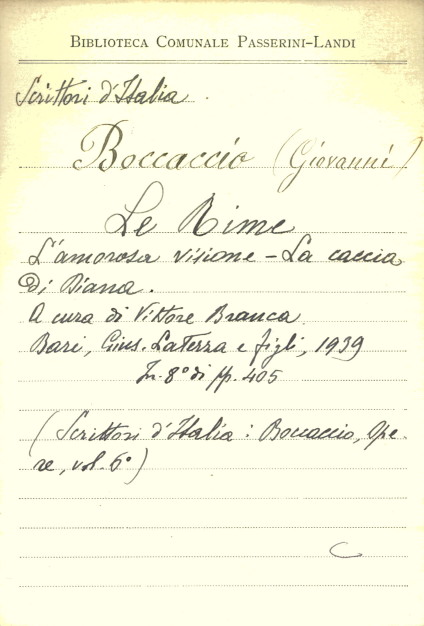 BIBLIOTECA COMUNALE PASSERINI-LANDI
Scrittori d'Italia.
Boccaccio (Giovanni)
Le Rime
L'amorosa visione - La caccia
di Diana.
A cura di Vittore Branca
Bari, Gius. Laterza e figli, 1939
In-8° di pp. 405
(Scrittori d'Italia: Boccaccio, Ope-
re, vol. 6°)